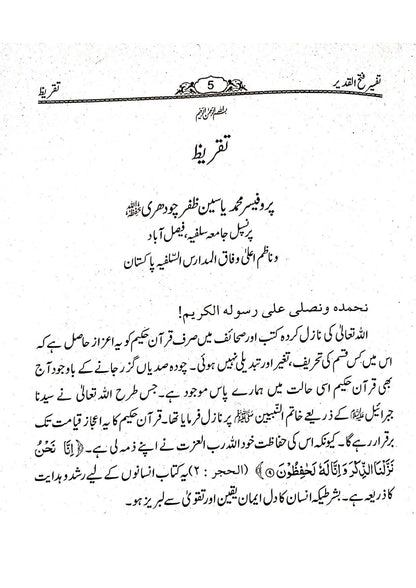 تفسیر فتح القدیر 5 تقریظ
بسم اللہ الرحمن الرحیم
تقریظ
پروفیسر محمد یاسین ظفر چودھری حفظہ اللہ
پرنسپل جامعہ سلفیہ، فیصل آباد
و ناظم اعلیٰ وفاق المدارس السلفیہ پاکستان
نحمده ونصلى على رسوله الكريم!
اللہ تعالیٰ کی نازل کردہ کتب اور صحائف میں صرف قرآن حکیم کو یہ اعزاز حاصل ہے کہ
اس میں کسی قسم کی تحریف، تغیر اور تبدیلی نہیں ہوئی۔ چودہ صدیاں گزر جانے کے باوجود آج
بھی قرآن حکیم اسی حالت میں ہمارے پاس موجود ہے۔ جس طرح اللہ تعالیٰ نے سیدنا
جبرائیل علیہ السلام کے ذریعے خاتم النبیین ﷺ پر نازل فرمایا تھا۔ قرآن حکیم کا یہ اعجاز قیامت تک
برقرار رہے گا۔ کیونکہ اس کی حفاظت خود اللہ رب العزت نے اپنے ذمہ لی ہے۔ ﴿اِنَّا نَحْنُ
نَزَّلْنَا الذِّكْرَ وَاِنَّا لَهٗ لَحٰفِظُوْنَ ۹﴾ (الحجر : ۲) یہ کتاب انسانوں کے لیے رشد و ہدایت
کا ذریعہ ہے۔ بشرطیکہ انسان کا دل ایمان یقین اور تقویٰ سے لبریز ہو۔